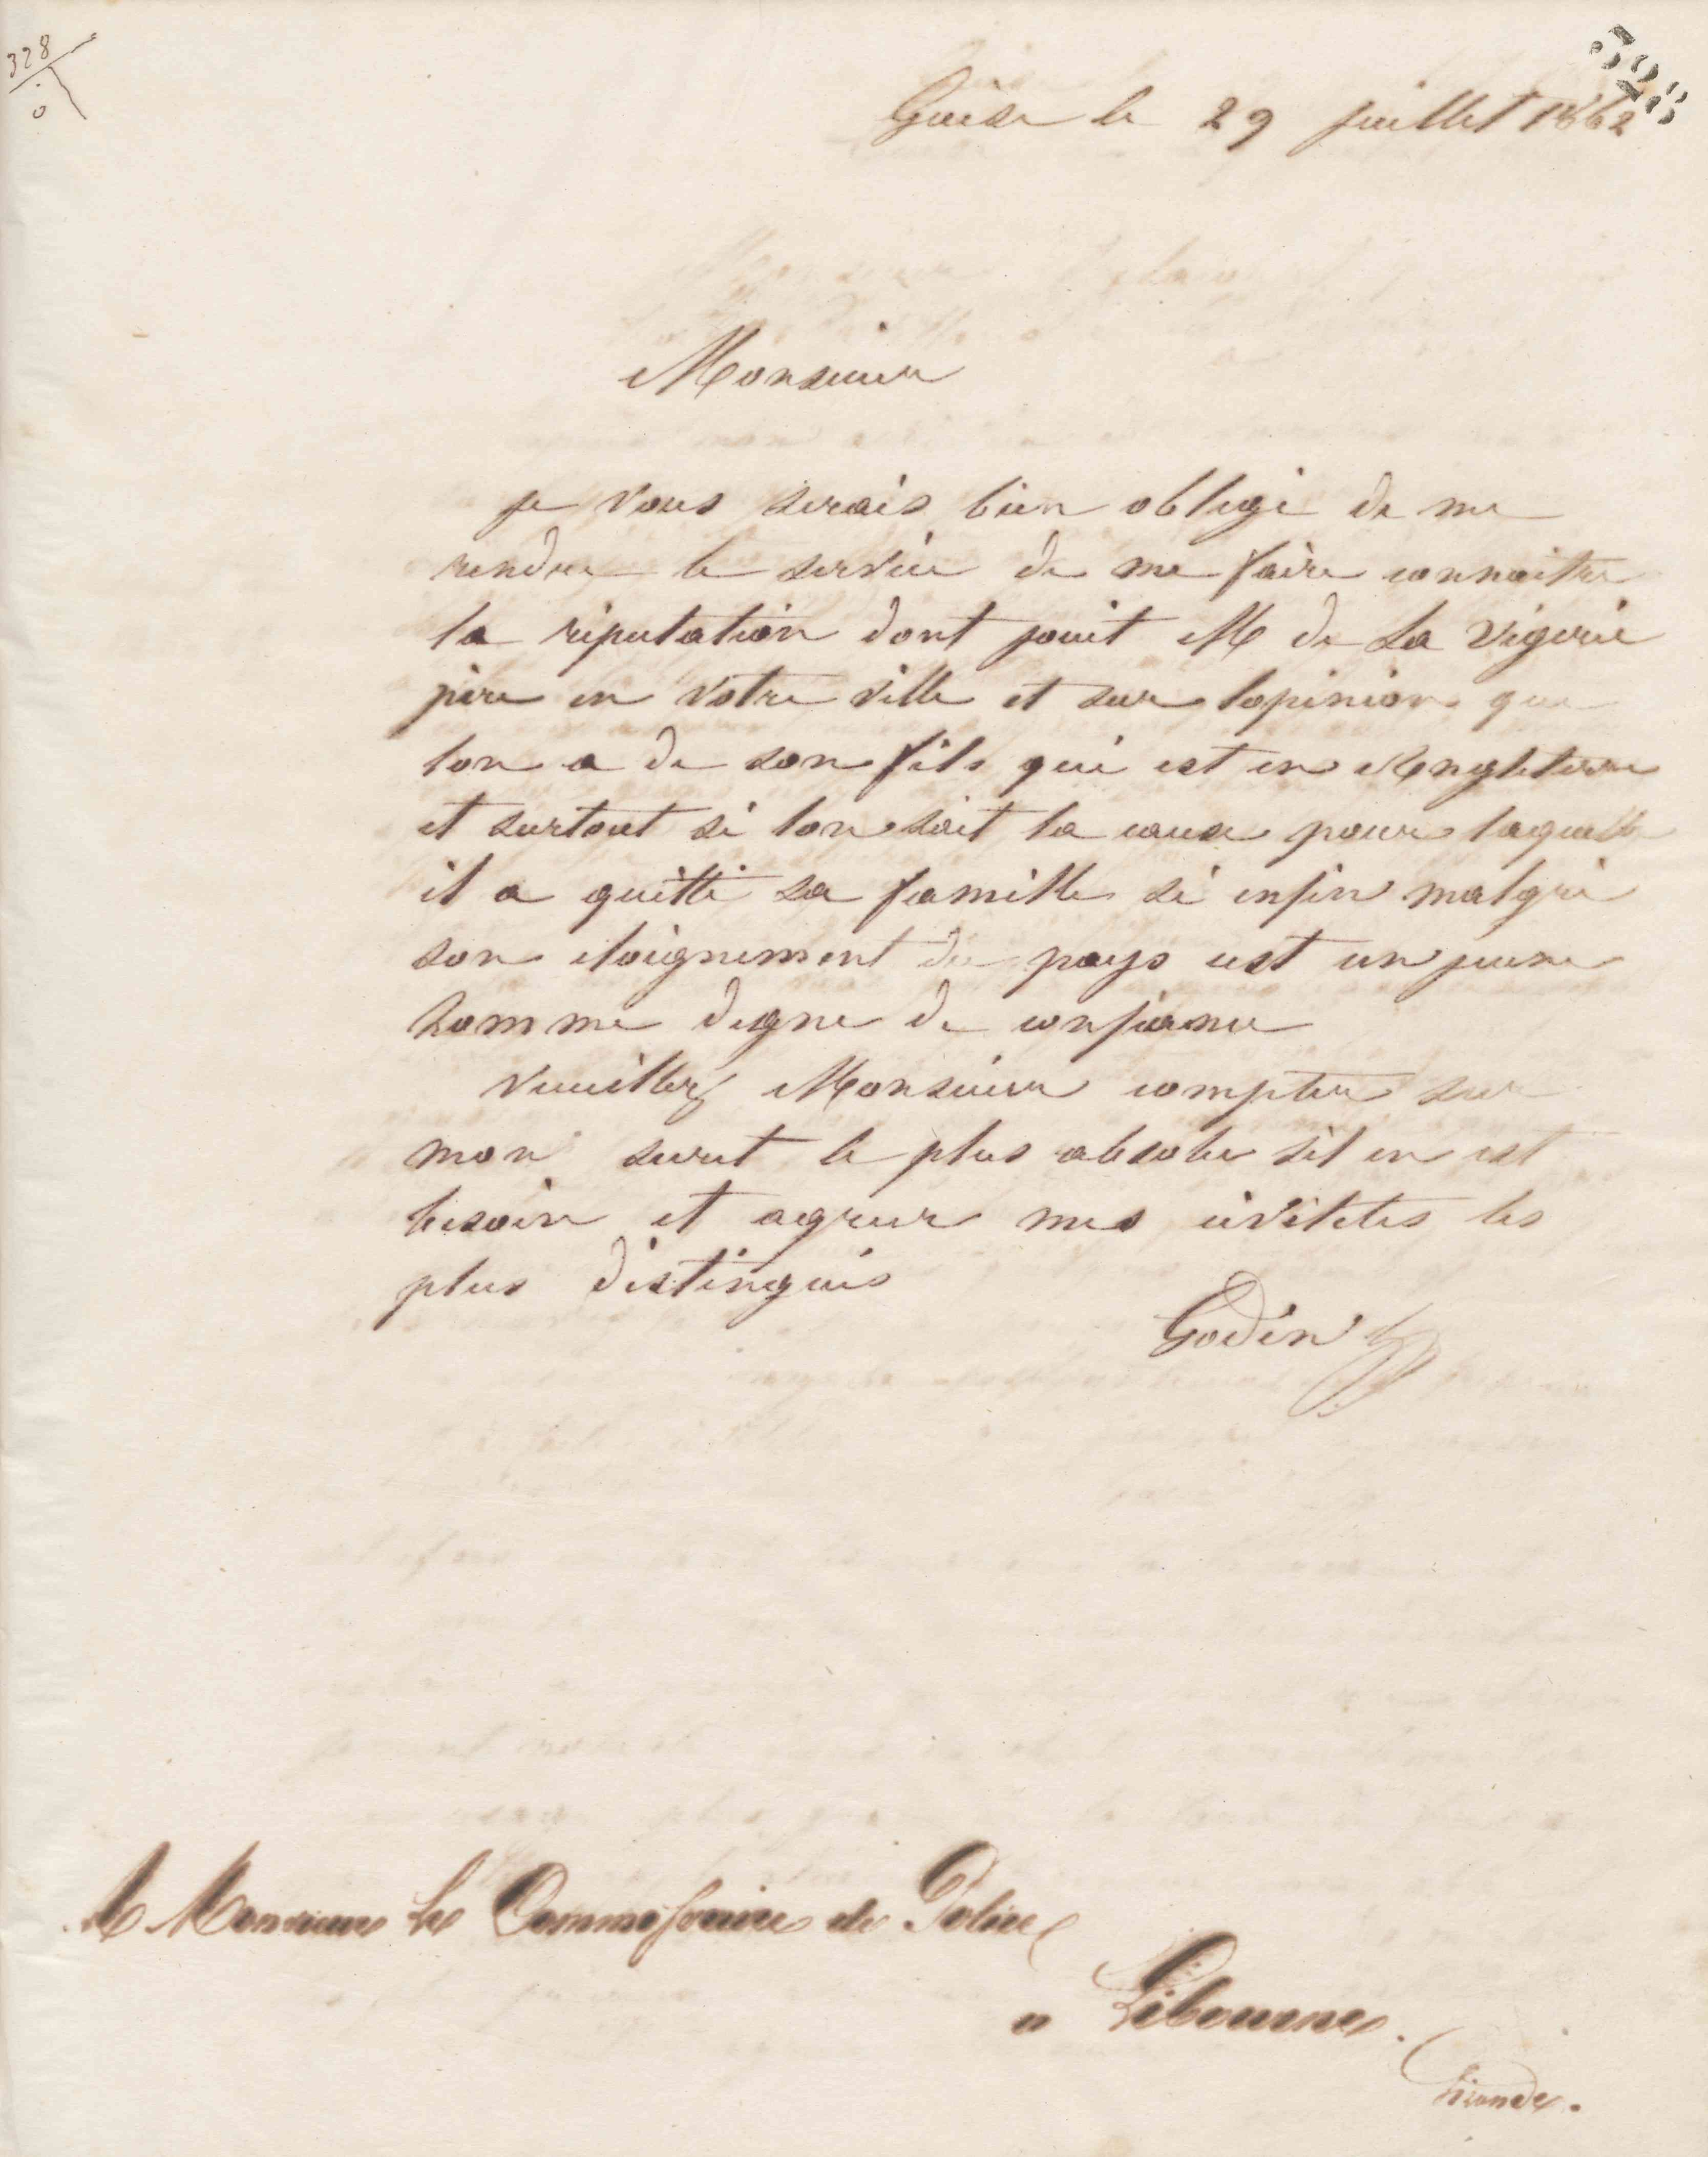 328
0
328
Guise le 29 juillet 1862
Monsieur
je vous serais bien obligé de me
rendre le service de me faire connaitre
la réputation dont jouit M de La Vigerie
père en votre ville et sur lopinion que
lon a de son fils qui est en Angleterre
et surtout si lon sait la cause pour laquelle
il a quitté sa famille si enfin malgré
son eloignement du pays cest un jeune
homme digne de confiance
Veuillez Monsieur compter sur
mon secret le plus absolu sil en est
besoin et agreer mes civilités les
plus distingués
Godin
A Monsieur Le Commissaire de Police
a Libourne.
Gironde.